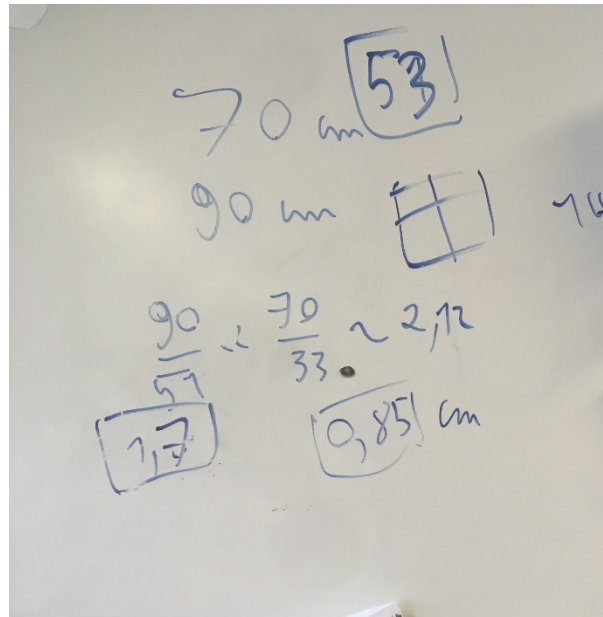 70 cm 53
90 cm
90/51 ÷ 70/33 ~ 2,12
1,7 0,85 cm